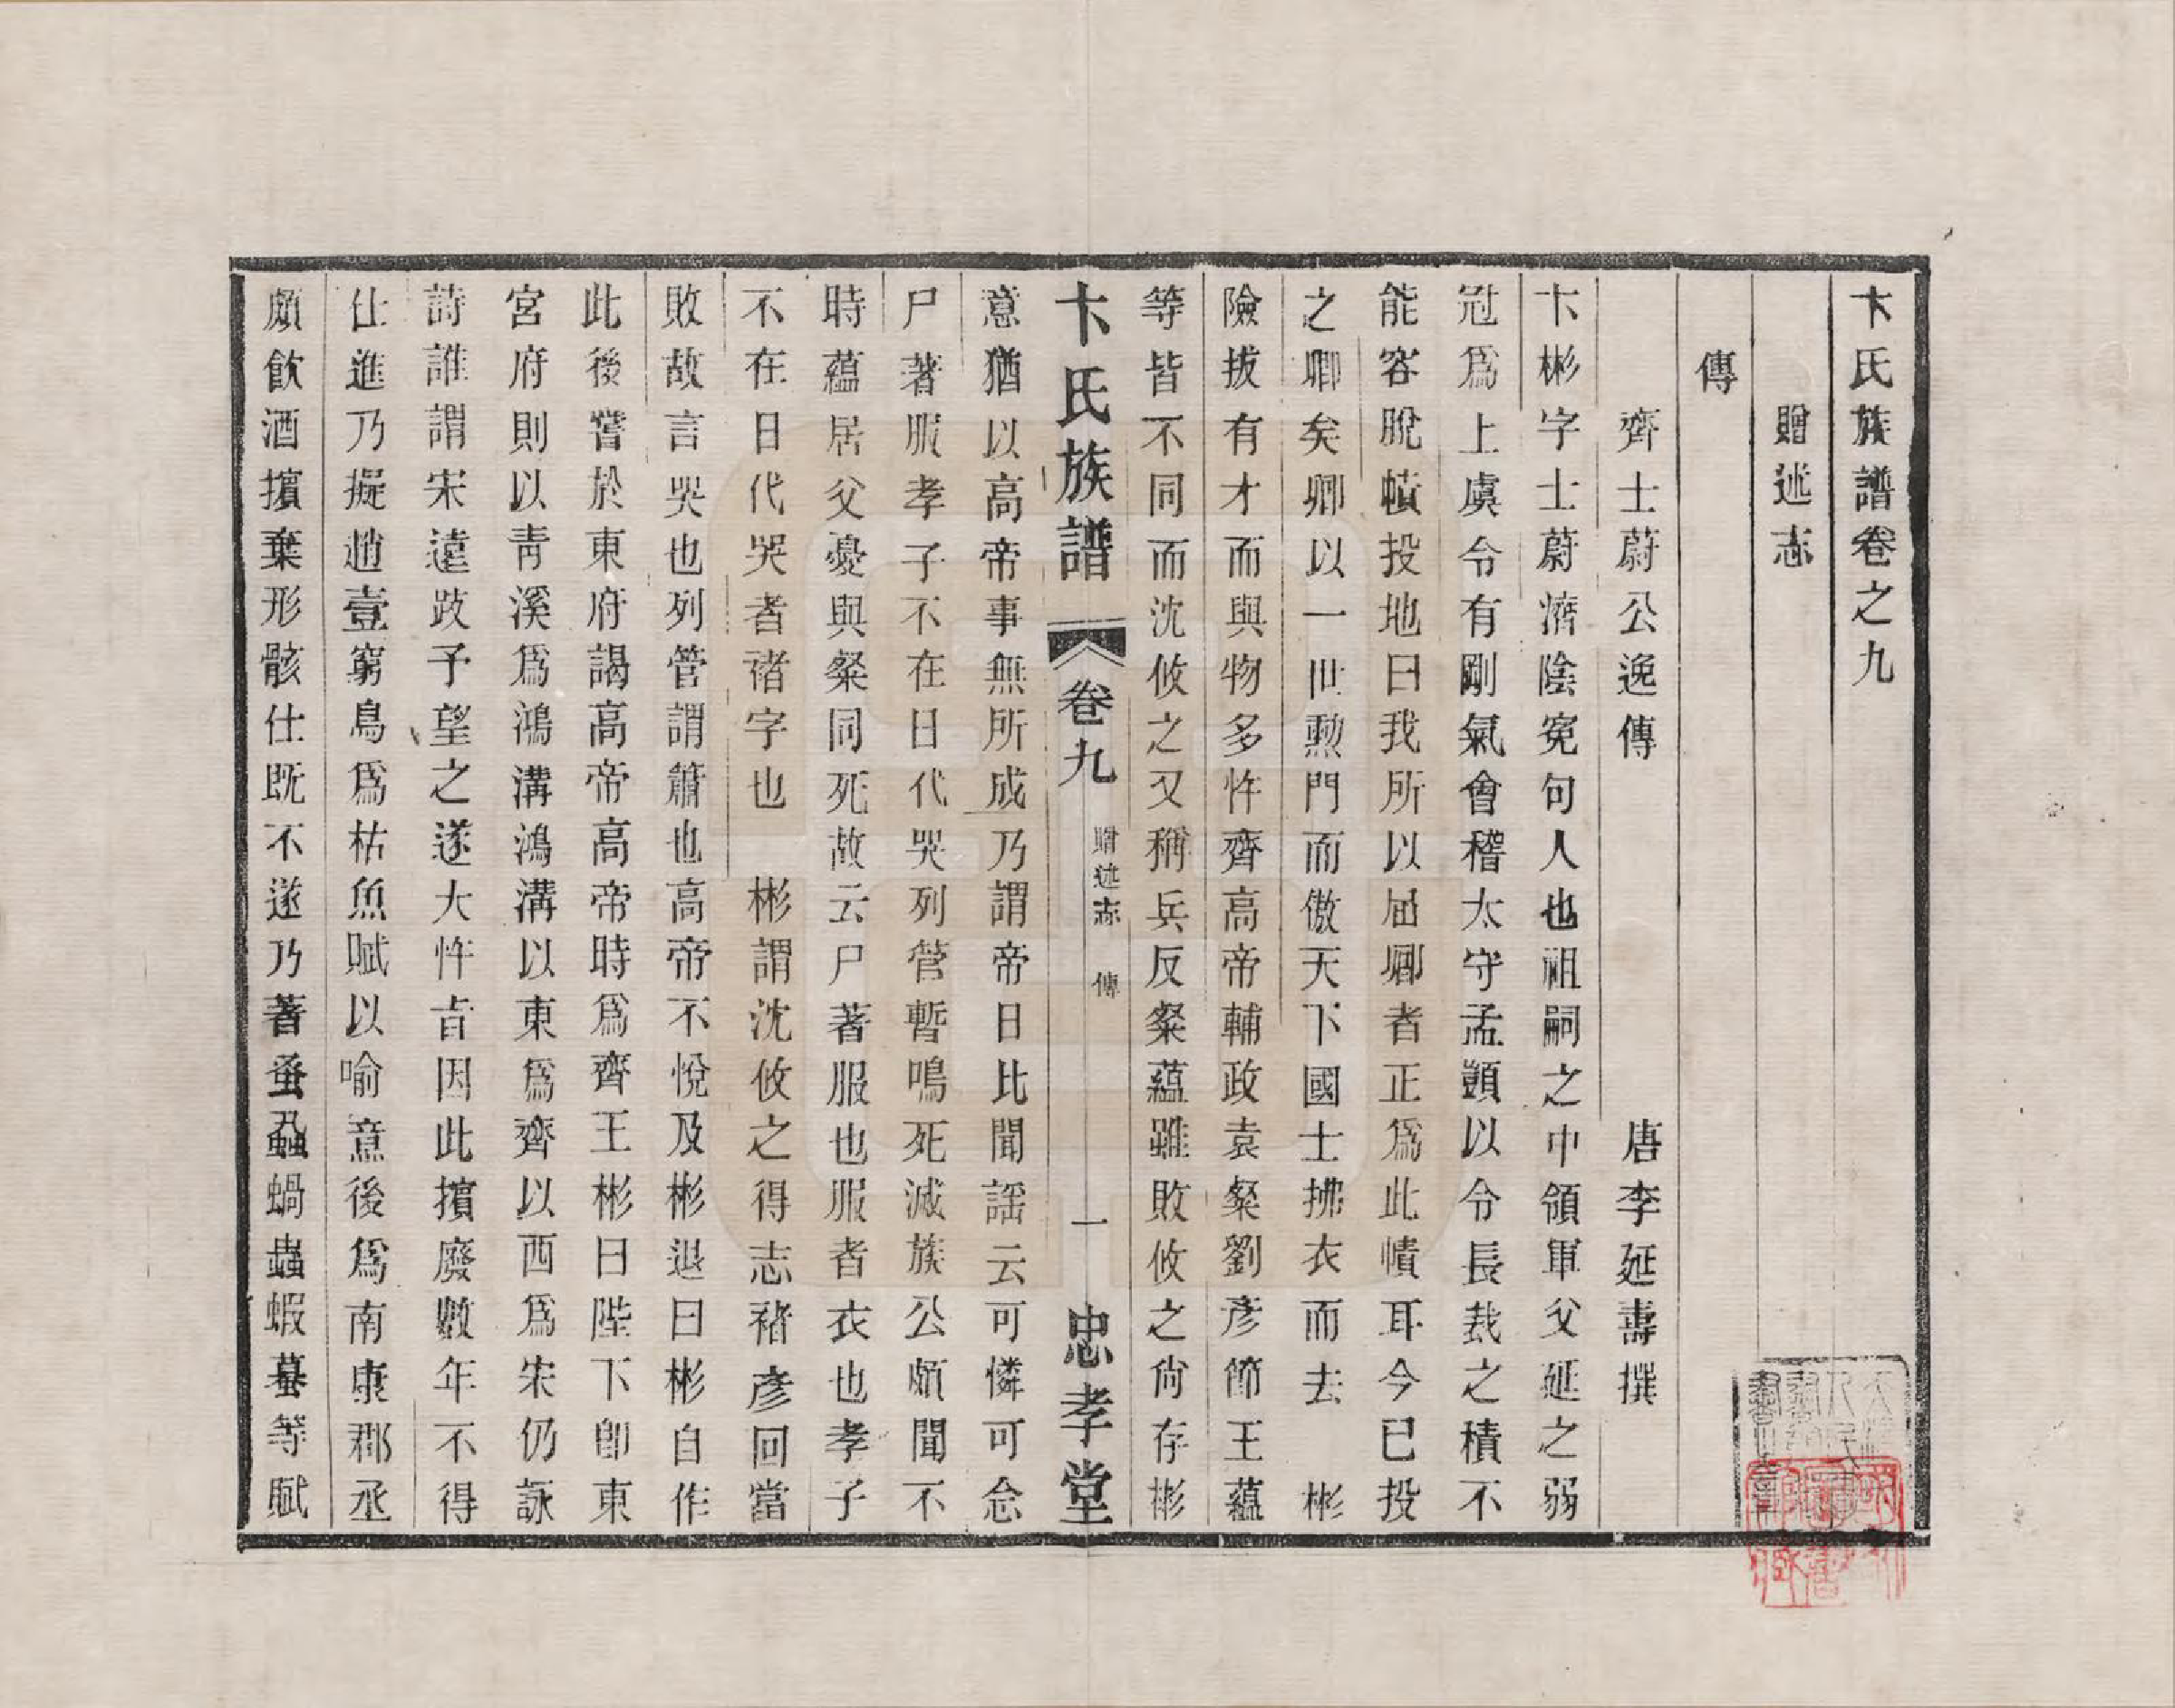 卞氏族譜卷之九
贈述志
傳
齊士蔚公逸傳　唐李延壽撰
卞彬字士蔚濟陰冤句人也祖嗣之中領軍父延之弱
冠爲上虞令有剛氣會稽太守孟顗以令長裁之積不
能容脫幘投地曰我所以屈卿者正爲此幘耳今已投
之卿矣卿以一世勲門而傲天下國士拂衣而去　彬
險拔有才而與物多忤齊高帝輔政袁粲劉彥節王蘊
等皆不同而沈攸之又稱兵反粲蘊雖敗攸之尙存彬
卞氏族譜　卷九　贈述志　傳　一　忠孝堂
意猶以高帝事無所成乃謂帝曰比聞謡云可憐可念
尸著服孝子不在日代哭列管暫鳴死滅族公頗聞不
時蘊居父憂與粲同死故云尸著服也服者衣也孝子
不在日代哭者禇字也　彬謂沈攸之得志禇彥回當
敗故言哭也列管謂簫也高帝不悅及彬退曰彬自作
此後嘗於東府謁高帝高帝時爲齊王彬曰陛下卽東
宮府則以靑溪爲鴻溝鴻溝以東爲齊以西爲宋仍詠
詩誰謂宋遠跂予望之遂大忤旨因此擯廢數年不得
仕進乃擬趙壹窮鳥爲枯魚賦以喻意後爲南康郡丞
頗飲酒擯棄形骸仕既不遂乃著蚤蝨蝸蟲蝦蟇等賦